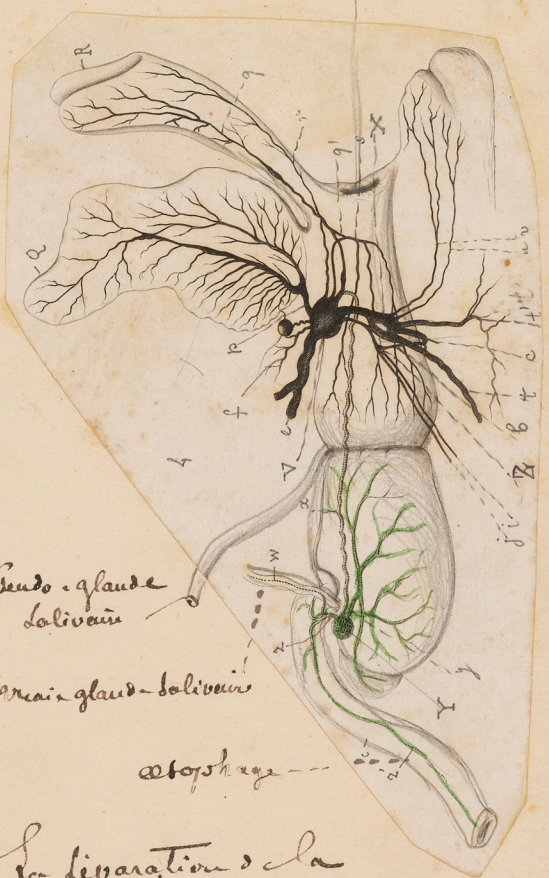 R
q
q'
s
X
Q
r
f
c
V
h
x
w
z
y
Y
c
t
b
Z
Pseudo-glande
Salivaire
vraie glande Salivaire
œsophage
La séparation de la